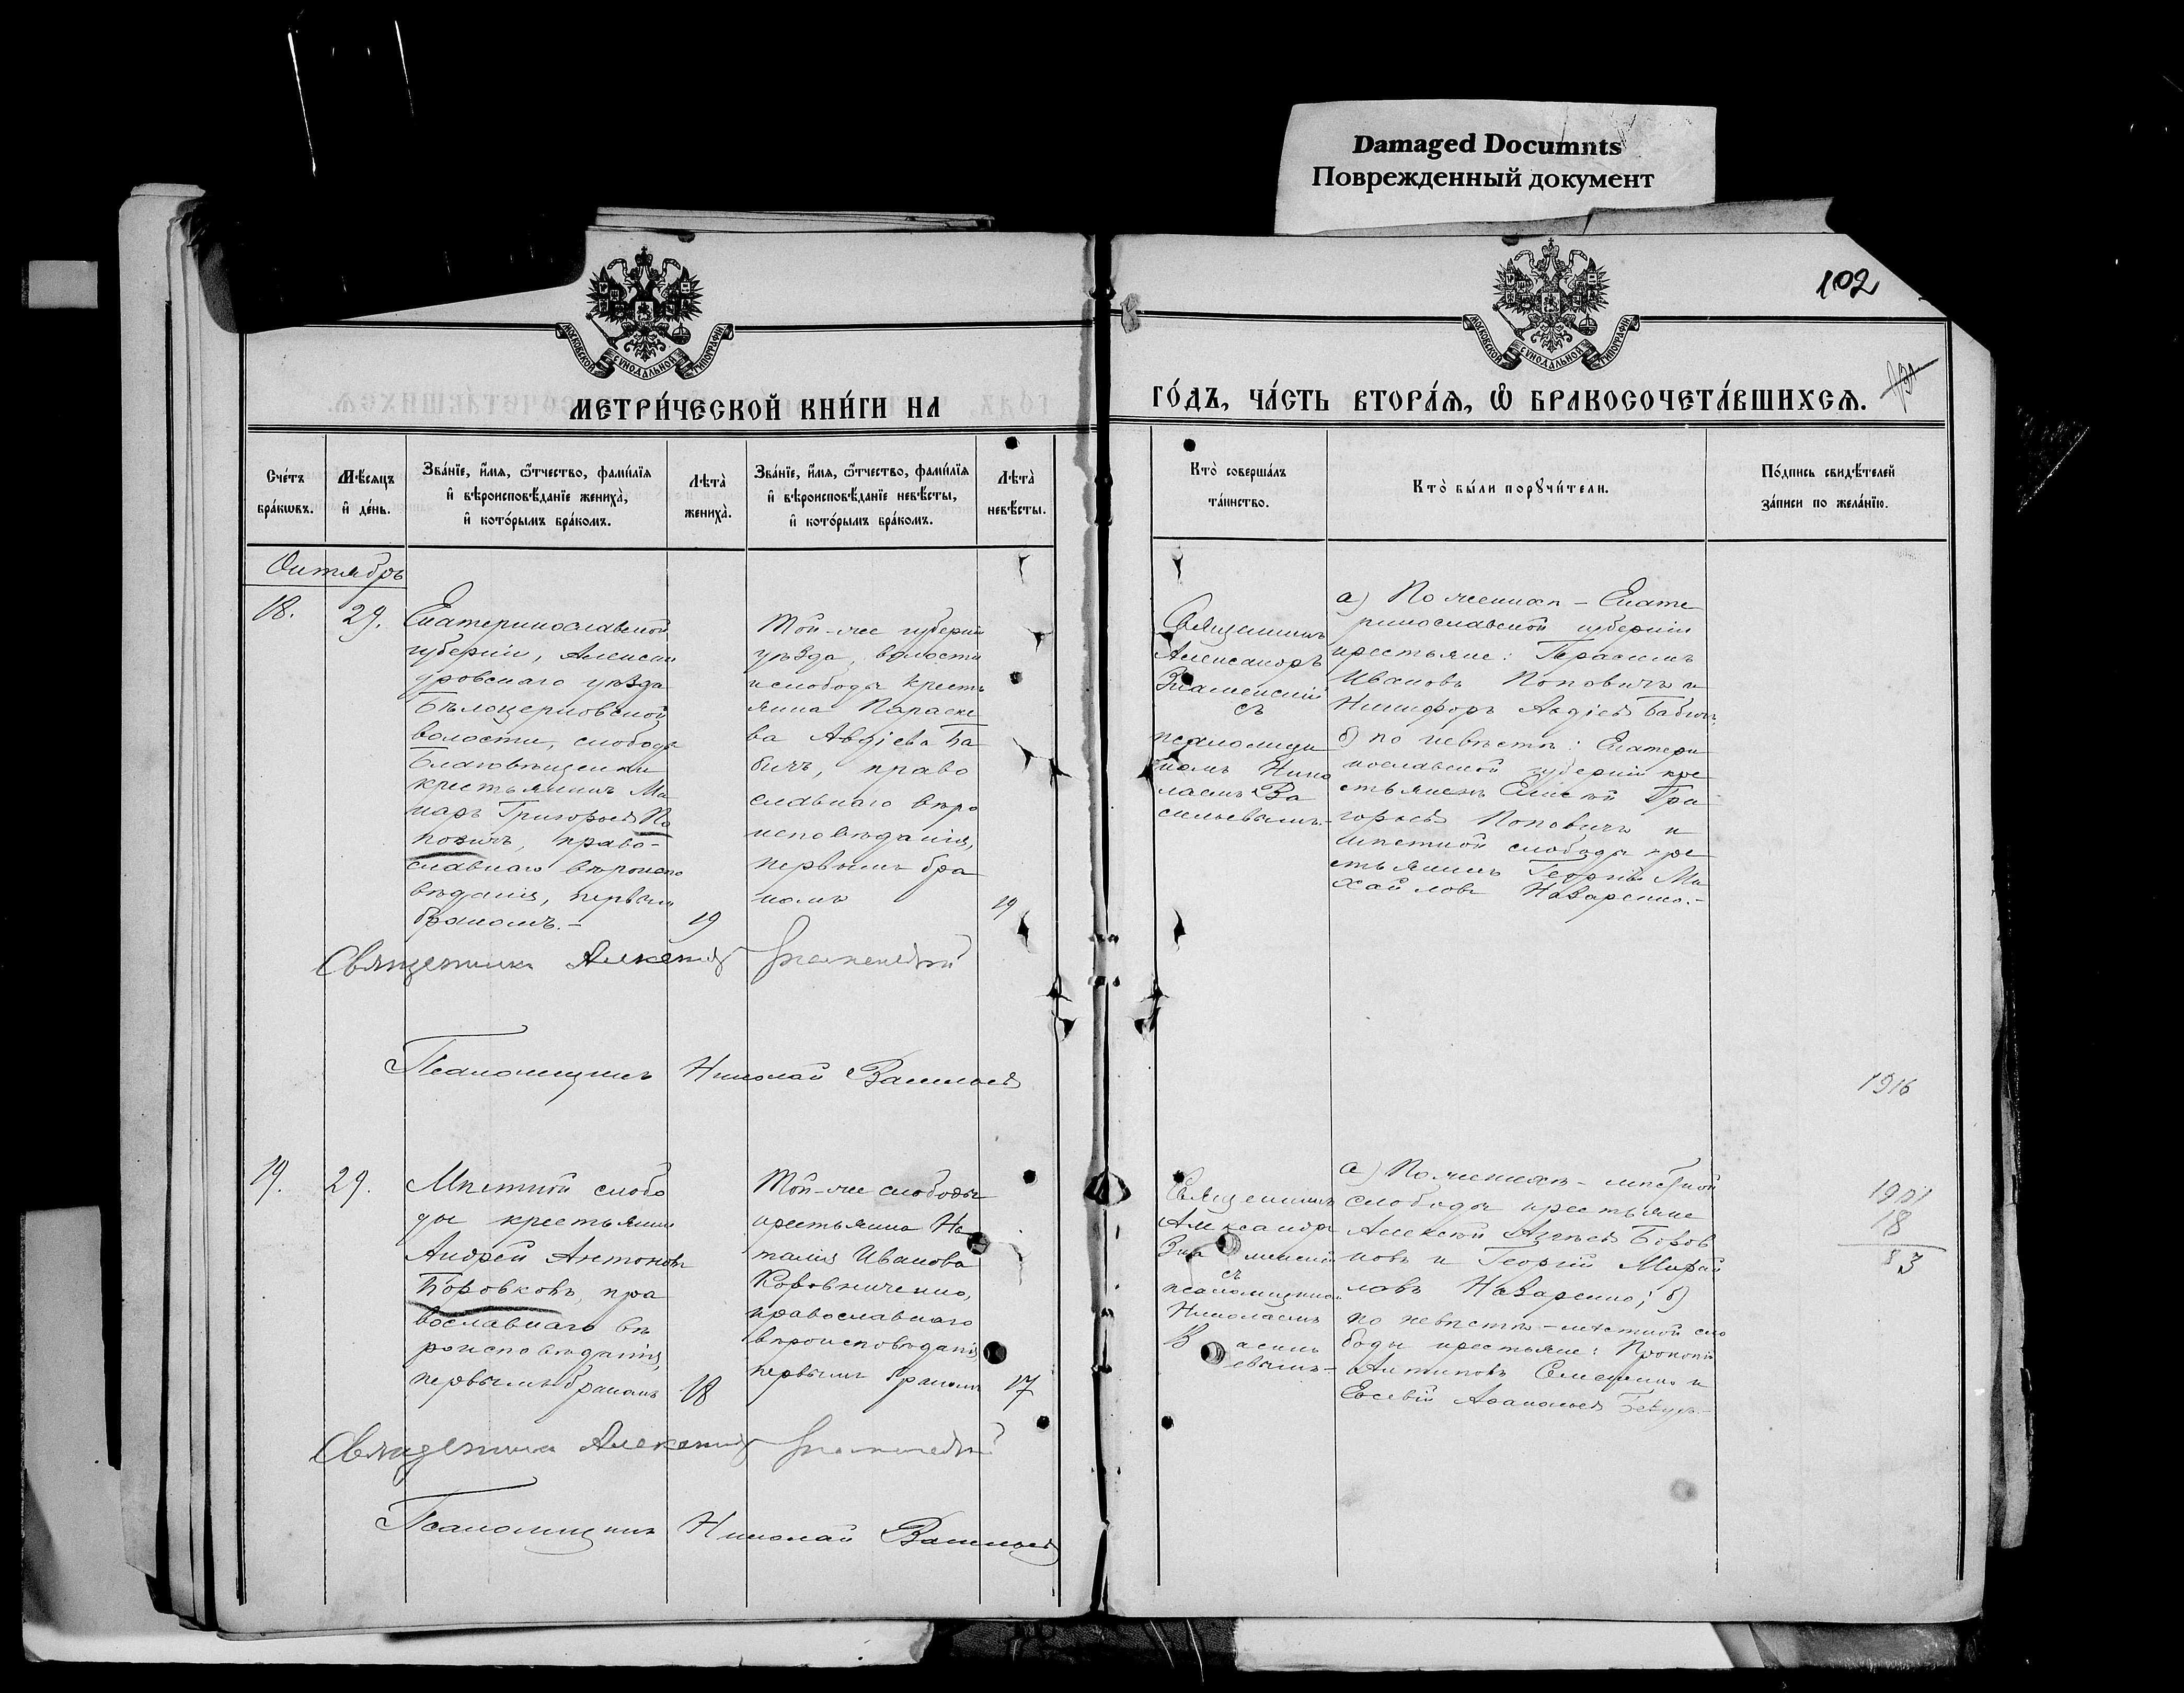 Damaged Documnts
Поврежденный документ
102
131
МОСКОВСКОЙ СѴНОДАЛЬНОЙ ТИПОГРАФІИ
МОСКОВСКОЙ СѴНОДАЛЬНОЙ ТИПОГРАФІИ
МЕТРИ́ЧЕСКОЙ КНИ́ГИ НА
ГО́ДЪ, ЧА́СТЬ ВТОРА́Ѧ, Ѽ БРАКОСОЧЕТА́ВШИХСѦ.
Сче́тъ
бра́кѡвъ.
Мѣ́сѧцъ
и҆ де́нь.
Зва́нїе, и҆́мѧ, ѻ҆́тчество, фами́лїѧ
и҆ вѣроисповѣ́данїе жениха̀,
и҆ кото́рымъ бра́комъ.
Лѣта̀
жениха̀.
Зва́нїе, и҆́мѧ, ѻ҆́тчество, фами́лїѧ
и҆ вѣроисповѣ́данїе невѣ́сты,
и҆ кото́рымъ бра́комъ.
Лѣта̀
невѣ́сты.
Кто̀ соверша́лъ
та́инство.
Кто̀ бы́ли порꙋчи́тели.
По́дпись свидѣ́телей
за́писи по жела́нїю.
Октябрь
18.
29.
Екатеринославской
губерніи, Алексан
дровскаго уѣзда
Бѣлоцерковской
волости, слободы
Благовѣщенки
крестьянинъ Ма
каръ Григорьевъ По
повичъ, право-
славнаго вѣроиспо
вѣданія, первымъ
бракомъ.-
19
Той-же губерніи
уѣзда, волости
и слободы кресть
янка Параске
ва Авдіева Ба
бичъ, право
славнаго вѣро
исповѣданія,
первымъ бра
комъ
19
Священникъ
Александръ
Знаменскій
съ
псаломщи
комъ Нико
лаемъ Ва
сильевымъ.-
а) По женихѣ - Екате
ринославской губерніи
крестьяне: Герасимъ
Ивановъ Поповичъ и
Никифоръ Авдіевъ Бабичъ;
б) по невѣстѣ: Екатери
нославской губерніи кре
стьянинъ Елисѣй Гри
горьевъ Поповичъ и
мѣстной слободы кре
стьянинъ Георгій Ми
хайловъ Назаренко.-
Священникъ Александръ Знаменскій
Псаломщикъ Николай Васильевъ
1916
19.
29.
Мѣстной слобо
ды крестьянинъ
Андрей Антоновъ
Боровковъ, пра
вославнаго вѣ
роисповѣданія,
первымъ бракомъ
18
Той-же слободы
крестьянка На
талія Иванова
Коровниченко,
православнаго
вѣроисповѣданія
первымъ бракомъ
17
Священникъ
Александръ
Знаменскій
съ
псаломщикомъ
Николаемъ
Василь
евымъ-
а) По женихѣ - мѣстной
слободы крестьяне
Алексѣй Боров
ковъ и Георгій Михай
ловъ Назаренко; б)
по невѣстѣ - мѣстной сло
боды крестьяне: Прокопій
Антиповъ и
Евсевій
1901
18
83
Священникъ Александръ Знаменскій
Псаломщикъ Николай Васильевъ